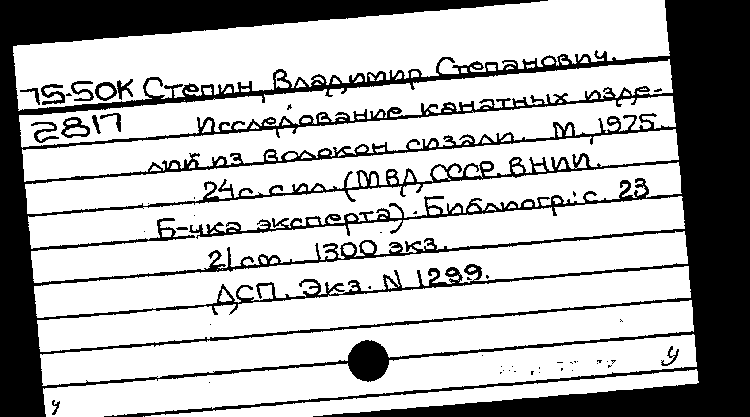 75-50К Степин, Владимир Степанович.
2817 Исследование канатных изде-
лий из волокон сизали. М., 1975.
24 с. с ил. (МВД СССР. ВНИИ.
Б-чка эксперта). Библиогр.: с. 23
21 см. 1300 экз.
ДСП. Экз. N 1299.
у
у